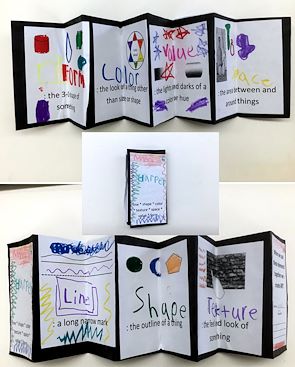 Form
: the 3-
something
Color
: the look of a thing other
than size or shape
Value
: the lights and darks of a
color or hue
Space
: the area between and
around things
Harper
line * shape * color
* texture * space *
Line
: a long narrow mark
Shape
: the outline of a thing
Texture
: the feel and look of
something